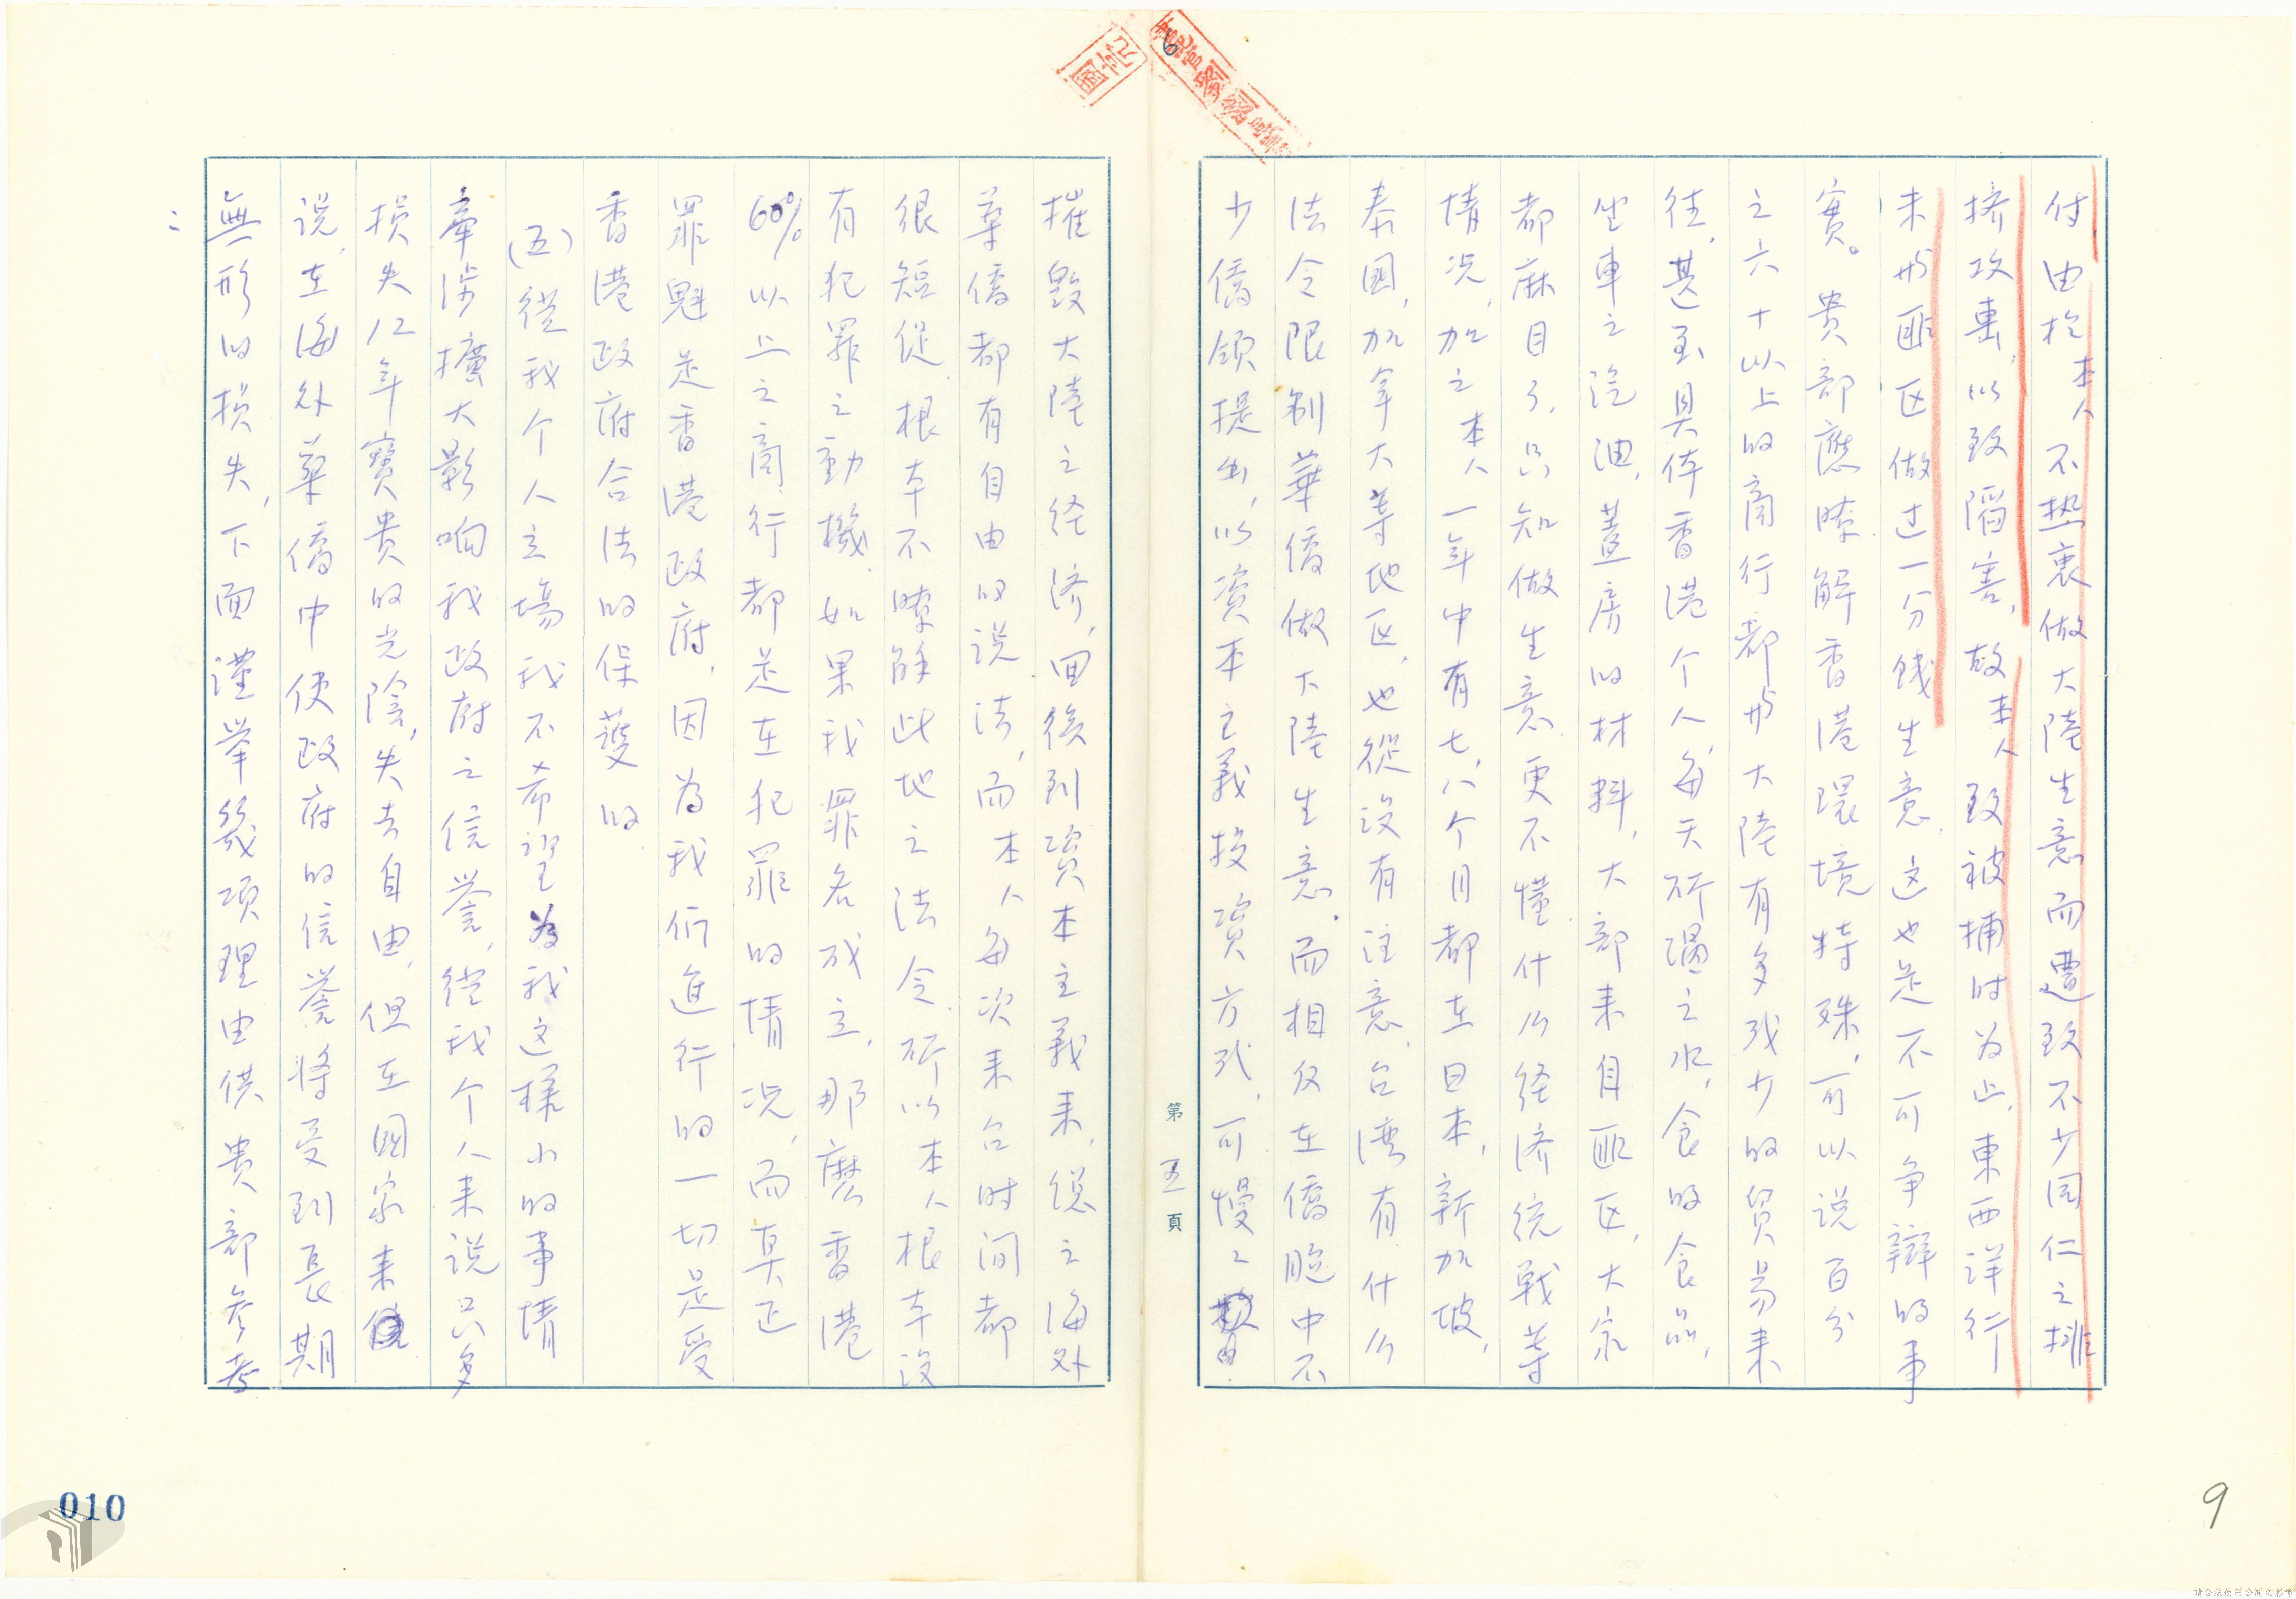 付由於本人不热衷做大陸生意而遭致不少同仁之排
擠攻擊,以致陷害,故本人致被捕时为止,東西洋行
未与匪区做过一分錢生意,这也是不可争辯的事
實。貴部應瞭解香港環境特殊,可以说百分
之六十以上的商行都与大陸有多或少的貿易来
往,甚至具体香港个人每天所喝之水,食的食品,
坐車之汽油,蓋房的材料,大部来自匪区,大家
都麻目了,只知做生意更不懂什么经济统戰等
情况,加之本人一年中有七、八个月都在日本,新加坡,
泰國,加拿大等地区,也從没有注意台湾有什么
法令限制華僑做大陸生意,而相反在僑胞中不
少僑領提出,以资本主義投資方式,可慢々
摧毀大陸之经济,回復到資本主義来,总之海外
華僑都有自由的说法,而本人每次来台时间都
很短促,根本不瞭解此地之法令,所以本人根本没
有犯罪之動機,如果我罪名成立,那麽香港
60%以上之商行都是在犯罪的情况,而真正
罪魁是香港政府,因为我们進行的一切是受
香港政府合法的保護的
(五)從我个人立場我不希望为我这樣小的事情
牽涉擴大影响我政府之信譽,從我个人来说只多
损失12年寶贵的光陰,失去自由,但在國家来
说,在海外華僑中使政府的信譽将受到長期
無形的损失,下面謹举幾项理由供贵部参考
:
第五頁
6
9
010
請合法使用公開之影像